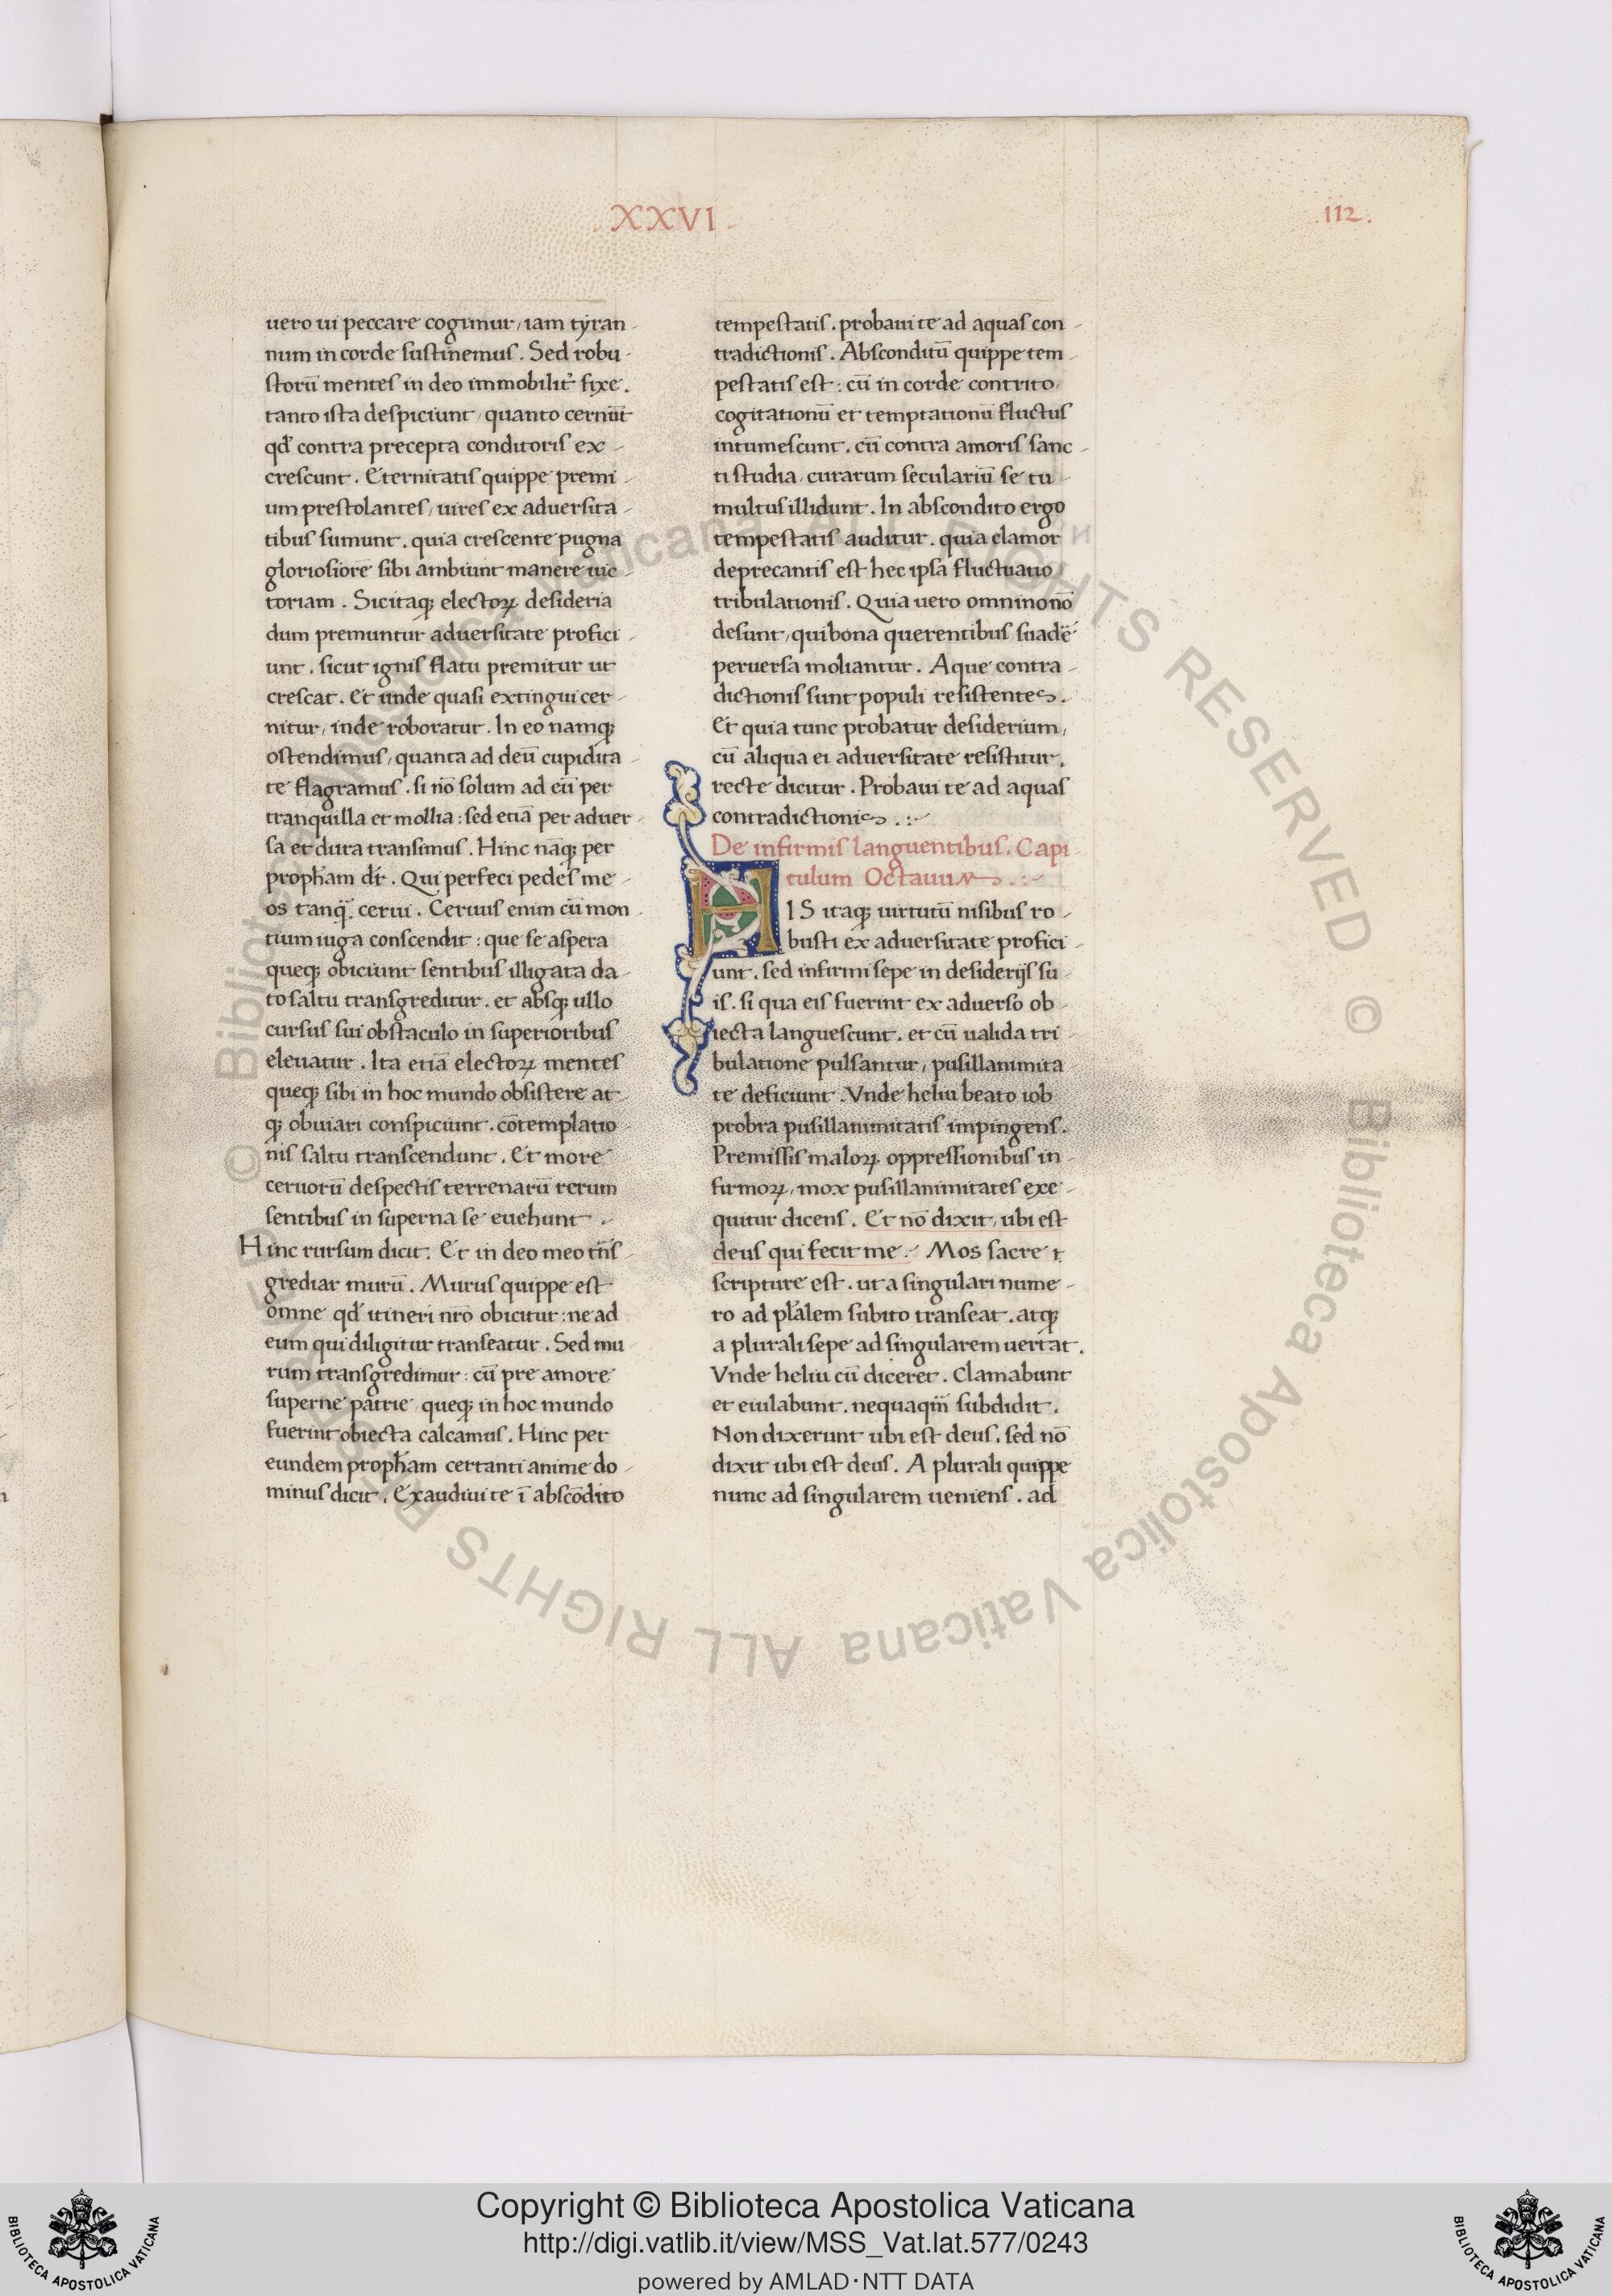 .XXVI.
.112.
uero ui peccare cogimur, iam tyran-
num in corde sustinemus. Sed robu-
storū mentes in deo immobilit̉ fixe.
tanto ista despiciunt, quanto cernūt
qd̉ contra precepta conditoris ex-
crescunt. Eternitatis quippe premi-
um prestolantes, uires ex aduersita-
tibus sumunt. quia crescente pugna
gloriosiorē sibi ambiunt manere uic-
toriam. Sic itaqꝫ electoꝝ desideria
dum premuntur aduersitate profici-
unt. sicut ignis flatu premitur ut
crescat. et unde quasi extingui cer-
nitur, inde roboratur. In eo namqꝫ
ostendimus, quanta ad deū cupidita-
te flagramus. si nō solum ad eū per
tranquilla et mollia: sed etiā per aduer-
sa et dura transimus. Hinc nāqꝫ per
propħam dr̄. Qui perfeci pedes me-
os tanq̈. cerui. Ceruus enim cū mon-
tium iuga conscendit: que se aspera
queqꝫ obiciunt sentibus illigata da-
to saltu transgreditur. et absqꝫ ullo
cursus sui obstaculo in superioribus
eleuatur. Ita etiā electoꝝ mentes
queqꝫ sibi in hoc mundo obsistere at-
qꝫ obuiari conspiciunt. cōtemplatio-
nis saltu transcendunt. Et more
ceruorū despectis terrenarū rerum
sentibus in superna se euehunt.
Hinc rursum dicit. Et in deo meo tn̄s-
grediar murū. Murus quippe est
omne qd̉ itineri nr̄o obicitur: ne ad
eum qui diligitur transeatur. Sed mu-
rum transgredimur: cū pre amore
superne patrie, queqꝫ in hoc mundo
fuerint obiecta calcamus. Hinc per
eundem propħam certanti anime do-
minus dicit. Exaudiui te ī abscōdito
tempestatis. probaui te ad aquas con-
tradictionis. Absconditū quippe tem-
pestatis est: cū in corde contrito,
cogitationū et temptationū fluctus
intumescunt. cū contra amoris sanc-
ti studia, curarum seculariū se tu-
multus illidunt. In abscondito ergo
tempestatis auditur. quia clamor
deprecantis est hec ipsa fluctuatio
tribulationis. Quia uero omnino nō
desunt, qui bona querentibus suadē
peruersa moliantur. Aque contra-
dictionis sunt populi resistentes.
Et quia tunc probatur desiderium,
cū aliqua ei aduersitate resistitur.
recte dicitur. Probaui te ad aquas
contradictionis.
De infirmis languentibus. Capi-
tulum Octauum.
HIS itaqꝫ uirtutū nisibus ro-
busti ex aduersitate profici-
unt. sed infirmi sepe in desiderijs su-
is. si qua eis fuerint ex aduerso ob-
iecta languescunt. et cū ualida tri-
bulatione pulsantur, pusillanimita-
te deficiunt. Vnde heliu beato iob
probra pusillanimitatis impingens.
Premissis maloꝝ oppressionibus in-
firmoꝝ, mox pusillanimitates exe-
quitur dicens. Et nō dixit, ubi est
deus qui fecit me. Mos sacre
scripture est. ut a singulari nume-
ro ad pl̉alem subito transeat. atqꝫ
a plurali sepe ad singularem uertat.
Vnde heliu cū diceret. Clamabunt
et eiulabunt. nequaqm̈ subdidit.
Non dixerunt ubi est deus. sed nō
dixit ubi est deus. A plurali quippe
nunc ad singularem ueniens. ad
© Biblioteca Apostolica Vaticana ALL RIGHTS RESERVED
© Biblioteca Apostolica Vaticana ALL RIGHTS RESERVED
Copyright © Biblioteca Apostolica Vaticana
http://digi.vatlib.it/view/MSS_Vat.lat.577/0243
powered by AMLAD·NTT DATA
BIBLIOTECA APOSTOLICA VATICANA
BIBLIOTECA APOSTOLICA VATICANA